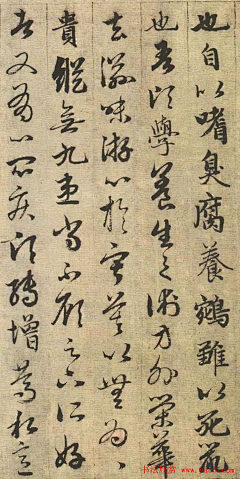 也自以嗜臭腐養鵷雛以死鼠
也吾頃學養生之術方外榮華
去滋味游心於寂寞以無為〻
貴縱無九患尚不顧足下所好
者又有心悶疾頃轉增篤私意